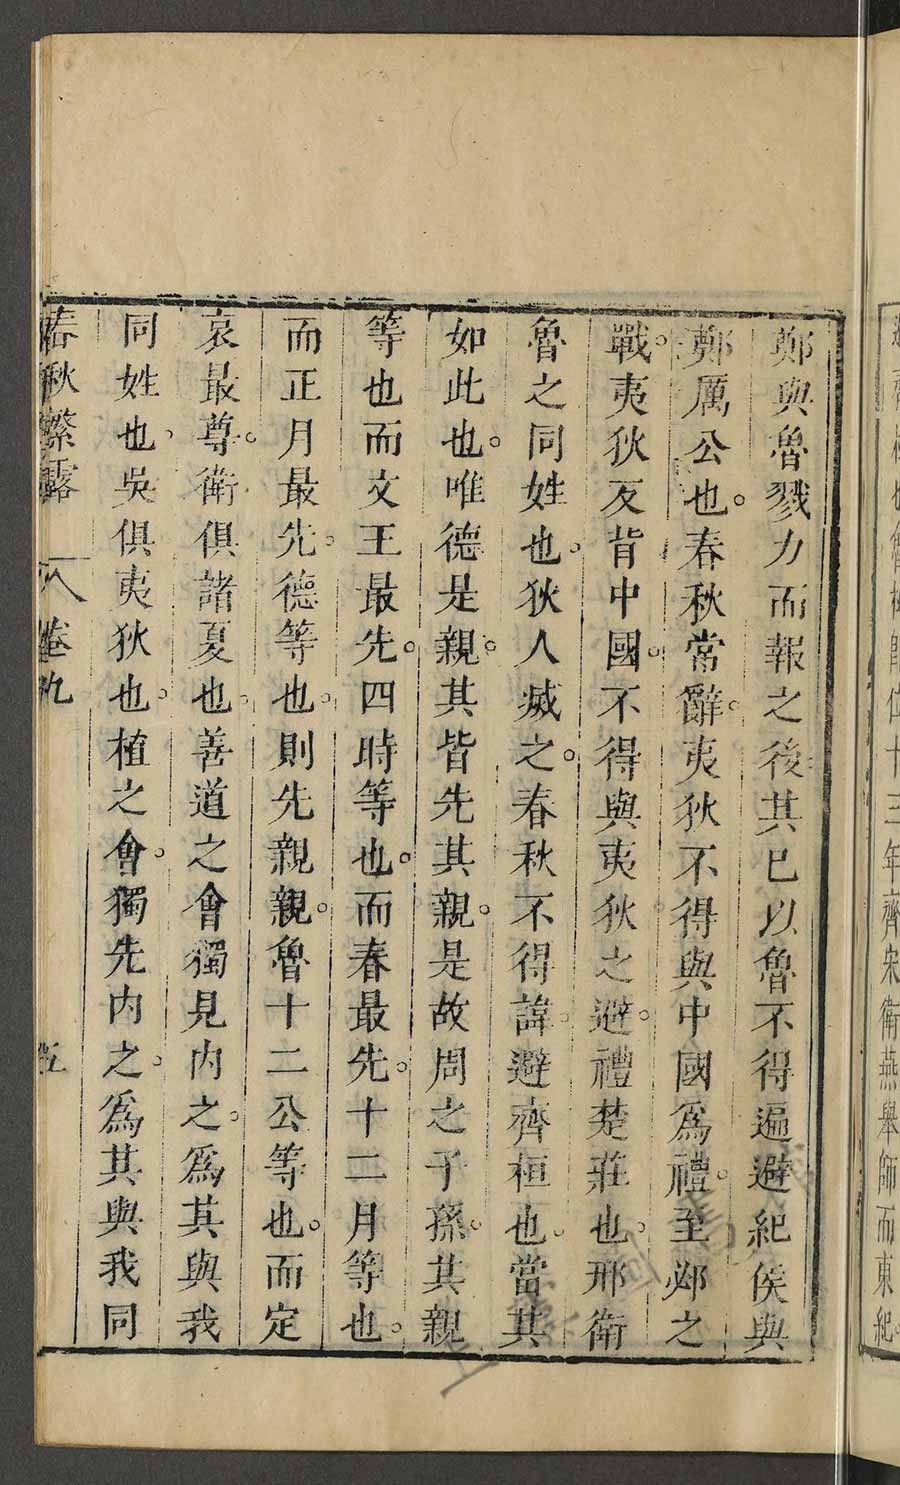 鄭與魯戮力而報之後其已以魯不得遍避紀侯與
鄭厲公也春秋常辭夷狄不得與中國爲禮至邲之
戰夷狄反背中國不得與夷狄之避禮楚莊也邢衛
魯之同姓也狄人滅之春秋不得諱避齊桓也當其
如此也唯德是親其皆先其親是故周之子孫其親
等也而文王最先四時等也而春最先十二月等也
而正月最先德等也則先親親魯十二公等也而定
哀最尊衛俱諸夏也善道之會獨見內之爲其與我
同姓也吳俱夷狄也植之會獨先內之爲其與我同
春秋繁露 卷九 五
三年齊宋衛燕舉師而東紀